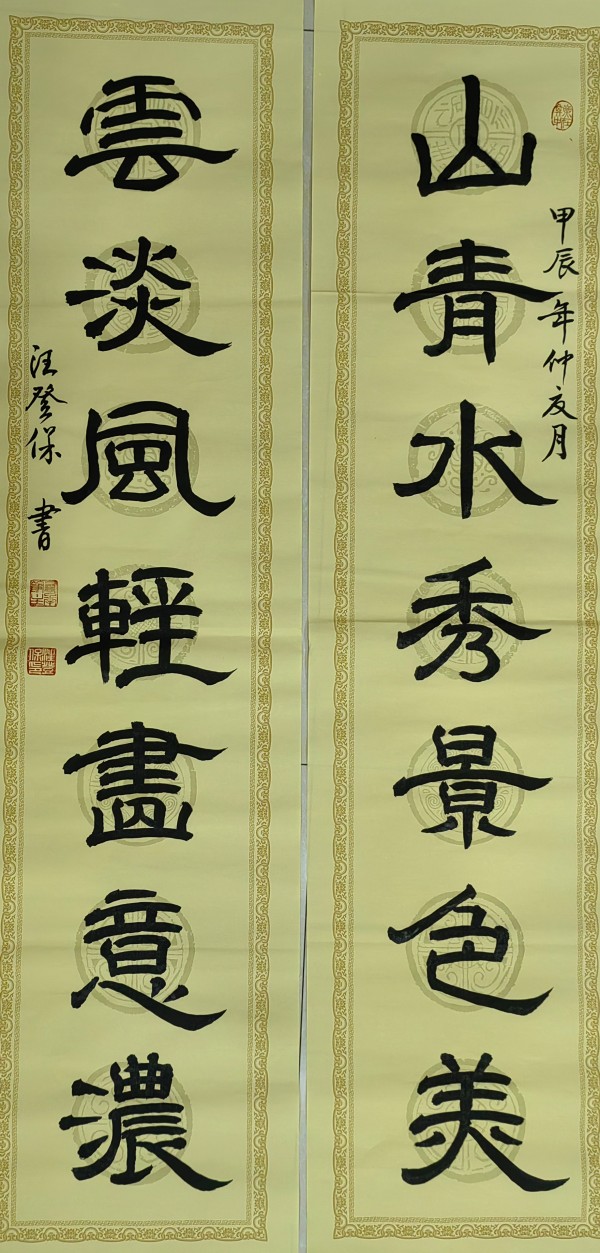 甲辰年仲夏月
山青水秀景色美
雲淡風輕畫意濃
汪登保 書